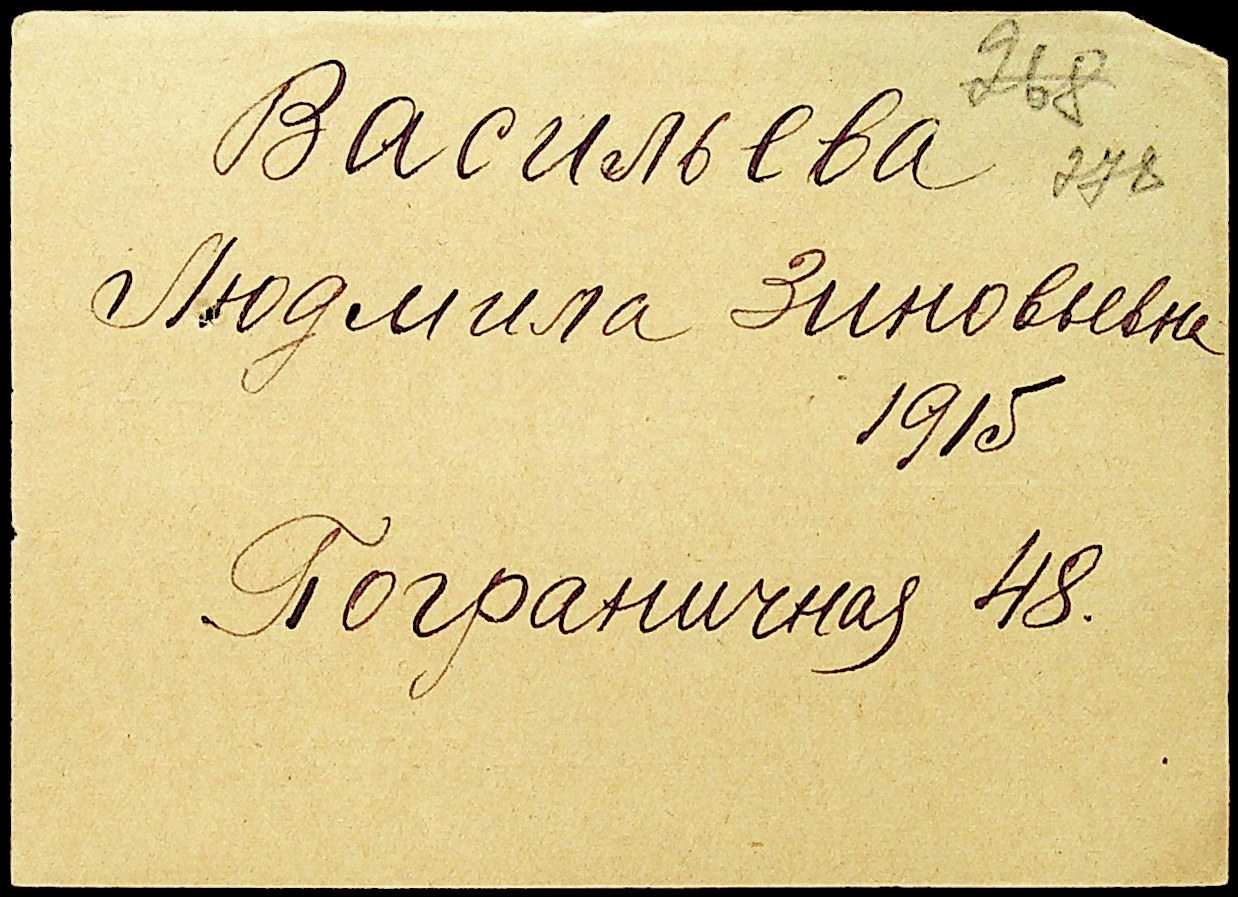 268
Васильева
278
Людмила Зиновьевна
1915
Пограничная 48.